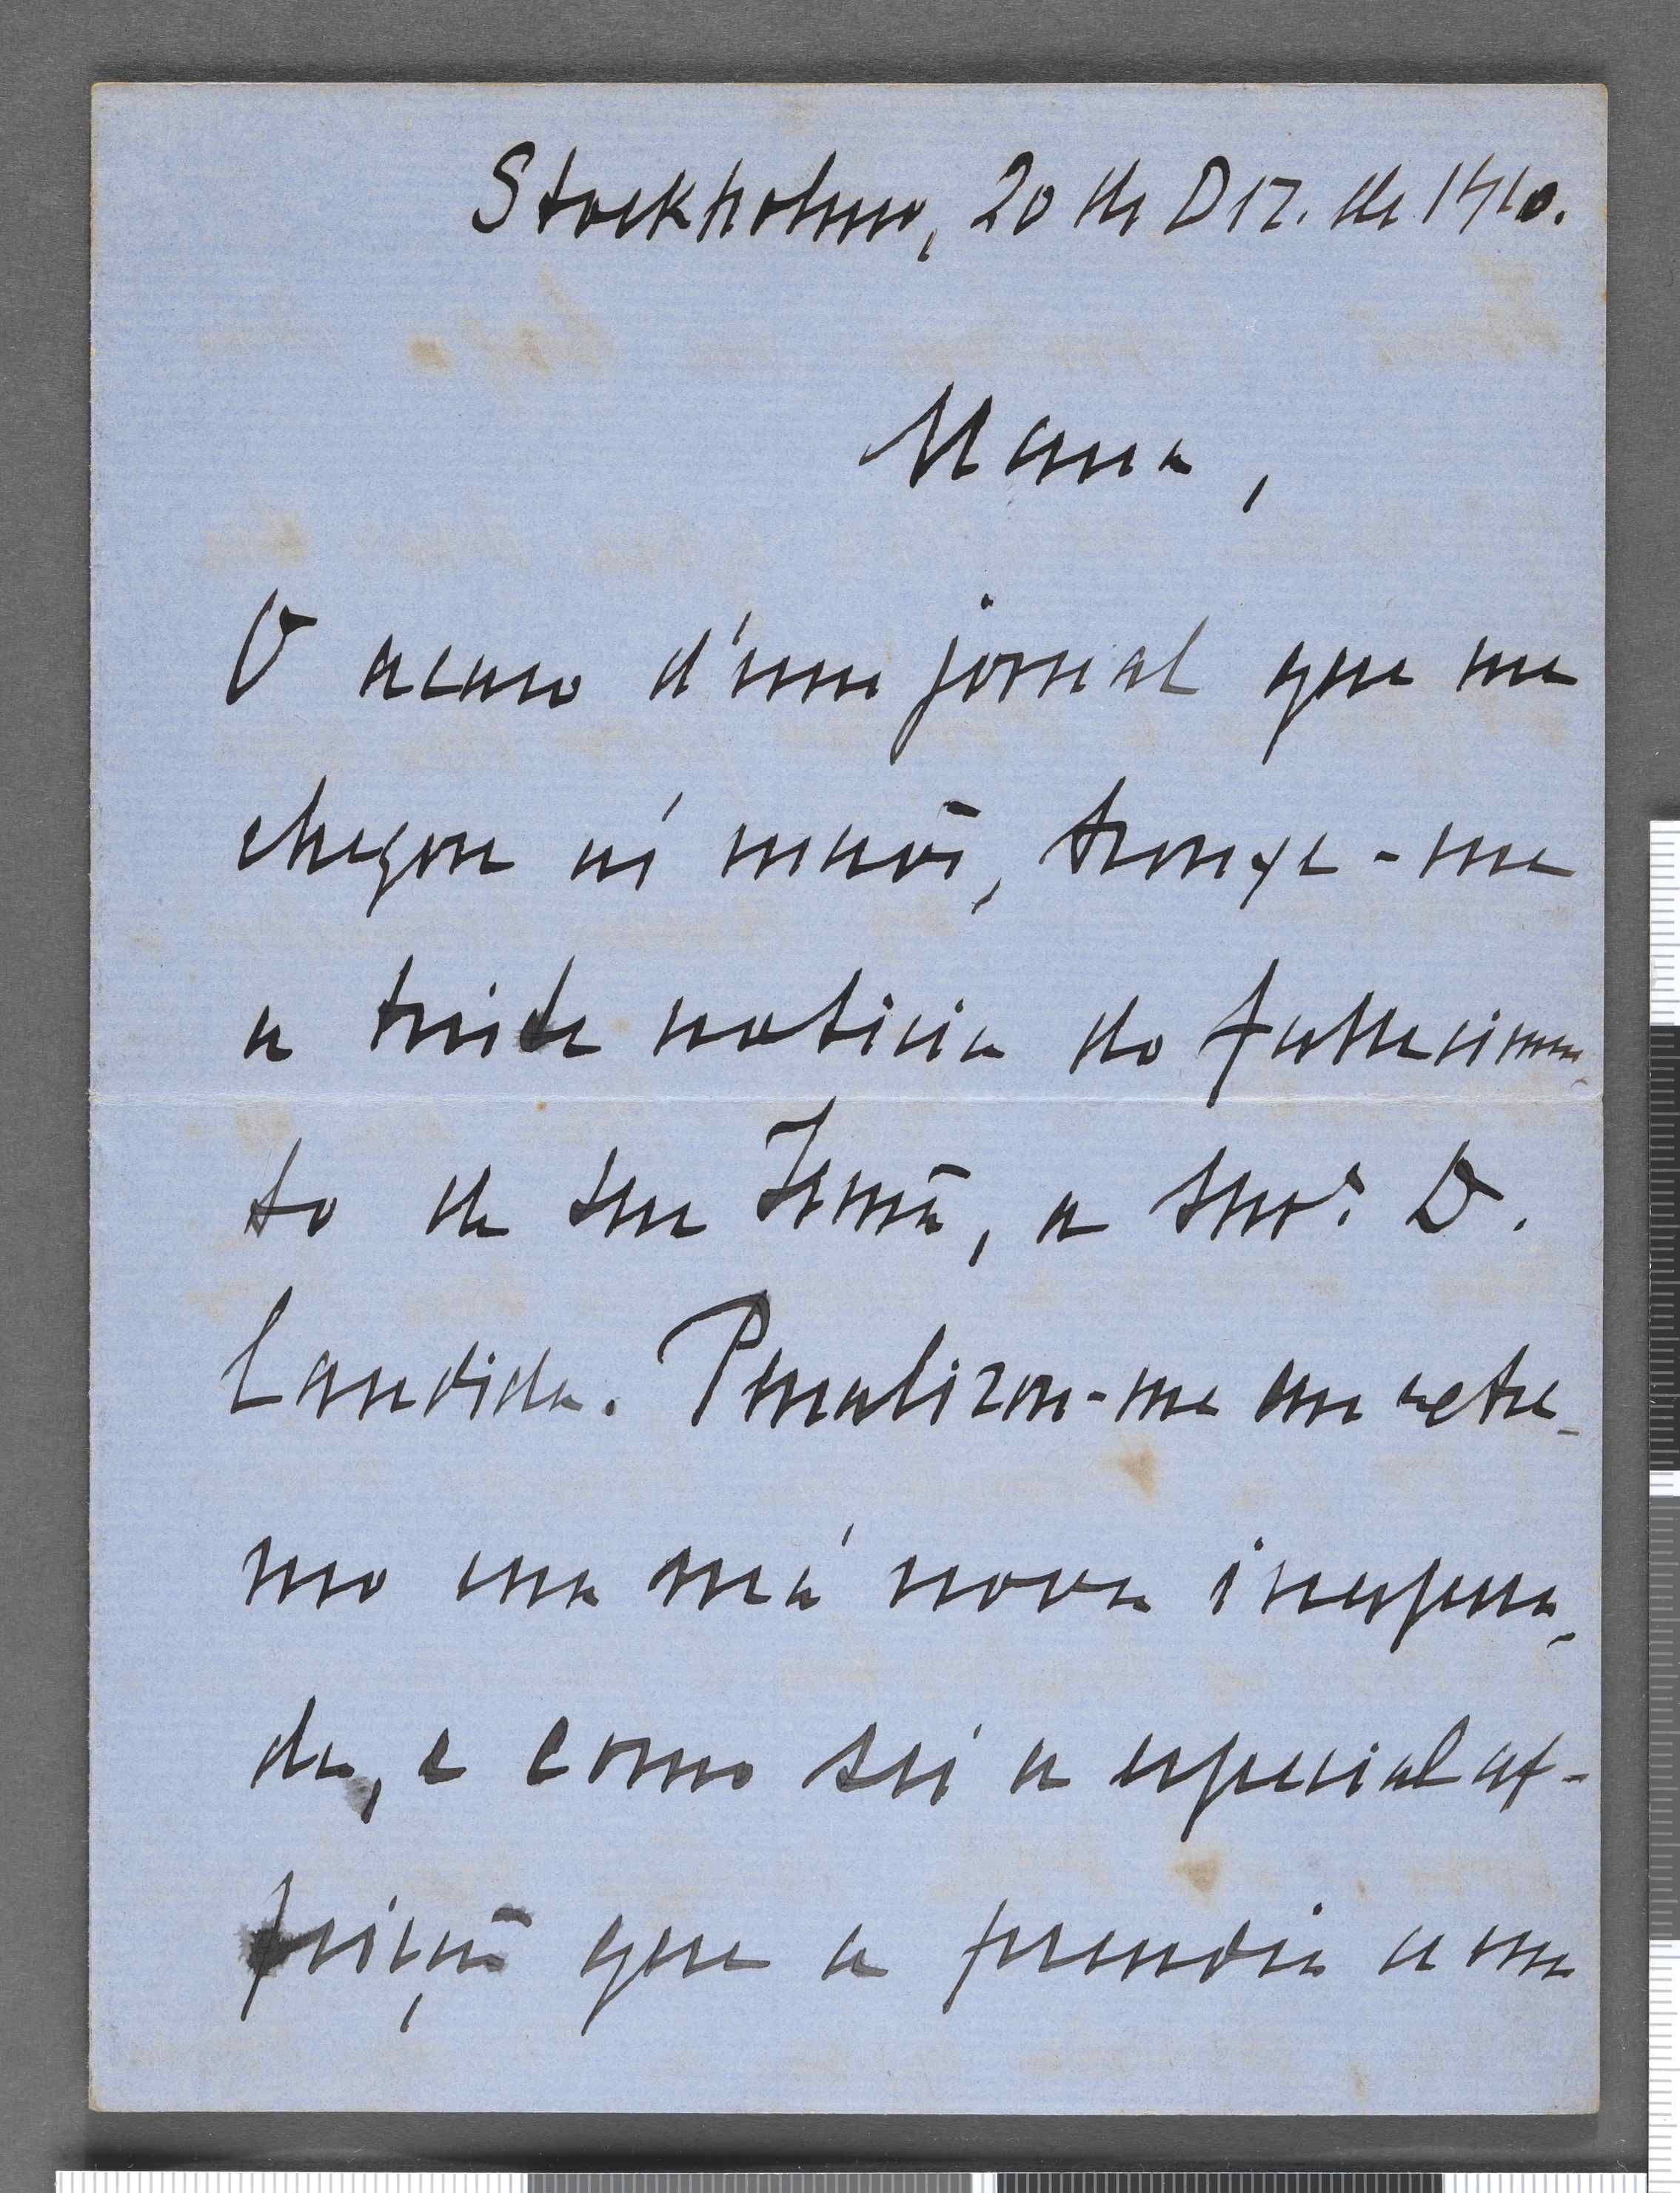 Stockholmo, 20 de Dez. de 1910.
Mana,
O acaso d'um jornal que me
chegou ás mãos, trouxe-me
a triste noticia do fallecimen-
to de sua Irmã, a Snrª. D.
Candida. Penalizou-me em extre-
mo essa má nova inespera-
da, e como sei a especial af-
feição que a prendia a essa